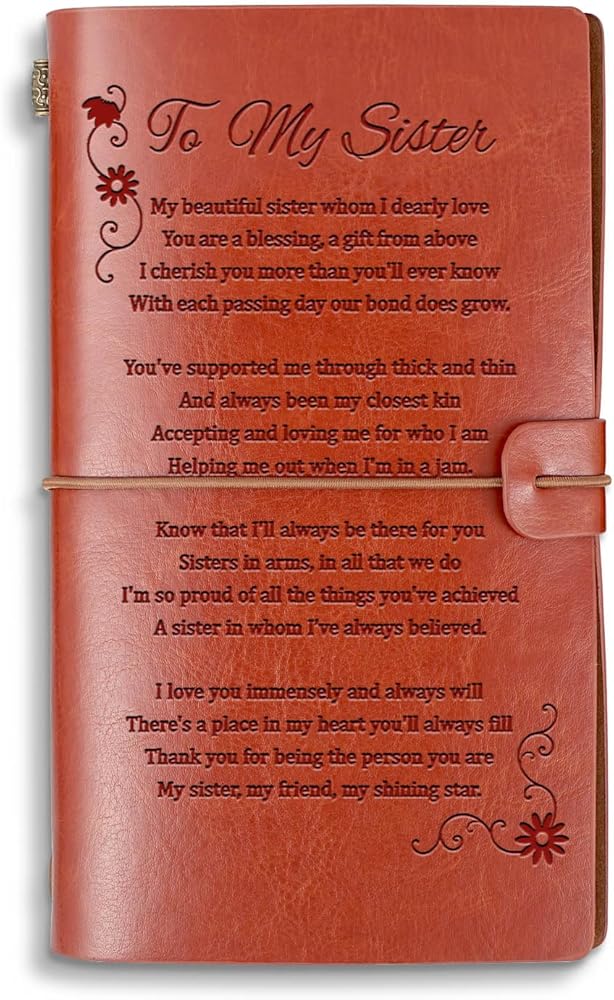 To My Sister
My beautiful sister whom I dearly love
You are a blessing, a gift from above
I cherish you more than you'll ever know
With each passing day our bond does grow.
You've supported me through thick and thin
And always been my closest kin
Accepting and loving me for who I am
Helping me out when I'm in a jam.
Know that I'll always be there for you
Sisters in arms, in all that we do
I'm so proud of all the things you've achieved
A sister in whom I've always believed.
I love you immensely and always will
There's a place in my heart you'll always fill
Thank you for being the person you are
My sister, my friend, my shining star.